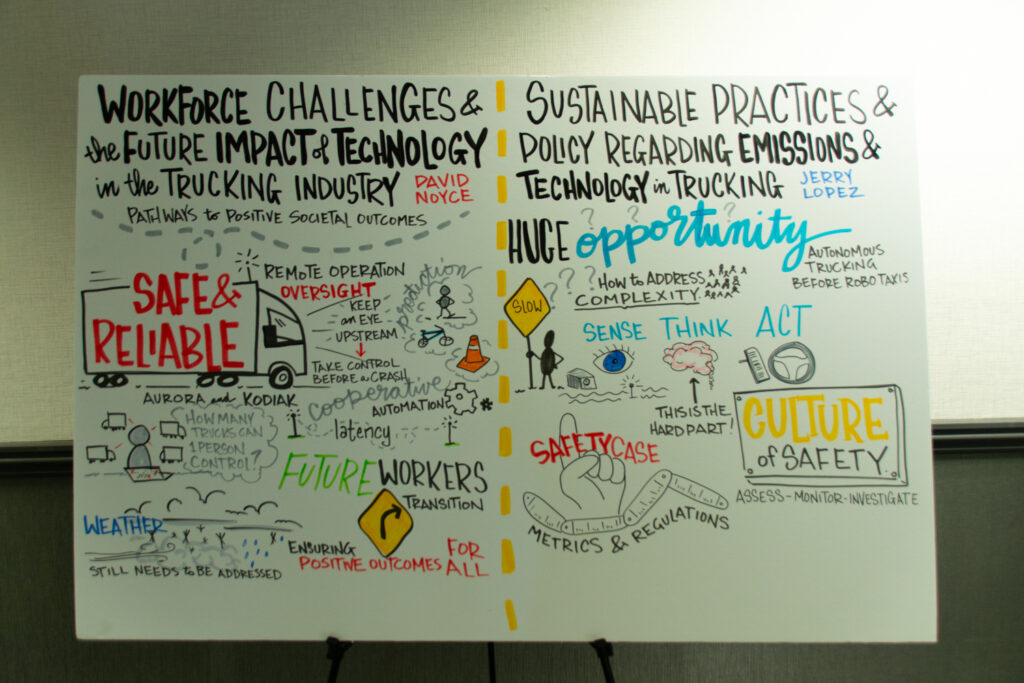 WORKFORCE CHALLENGES &
the FUTURE IMPACT of TECHNOLOGY
in the TRUCKING INDUSTRY
DAVID
NOYCE
PATHWAYS to POSITIVE SOCIETAL OUTCOMES
SAFE &
RELIABLE
REMOTE OPERATION
OVERSIGHT
KEEP
an EYE
UPSTREAM
TAKE CONTROL
BEFORE a CRASH
protection
AURORA and KODIAK
cooperative
AUTOMATION
latency
HOW MANY
TRUCKS CAN
1 PERSON
CONTROL?
FUTURE WORKERS
TRANSITION
WEATHER
STILL NEEDS to BE ADDRESSED
ENSURING
POSITIVE OUTCOMES
FOR
ALL
SUSTAINABLE PRACTICES &
POLICY REGARDING EMISSIONS &
TECHNOLOGY in TRUCKING
JERRY
LOPEZ
HUGE opportunity
AUTONOMOUS
TRUCKING
BEFORE ROBOTAXIS
? ? ? ?
? ? ?
HOW to ADDRESS
COMPLEXITY
SLOW
SENSE THINK ACT
THIS IS THE
HARD PART!
SAFETY CASE
METRICS & REGULATIONS
CULTURE
of SAFETY
ASSESS - MONITOR - INVESTIGATE